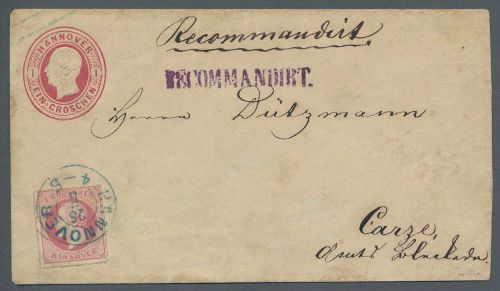 Recommandirt.
HANNOVER
1 1
EIN GROSCHEN
RECOMMANDIRT.
Herrn Dützmann
HANNOVER
25
5
4 - 5
1 GROSCHEN
HANNOVER
Carze,
Amts